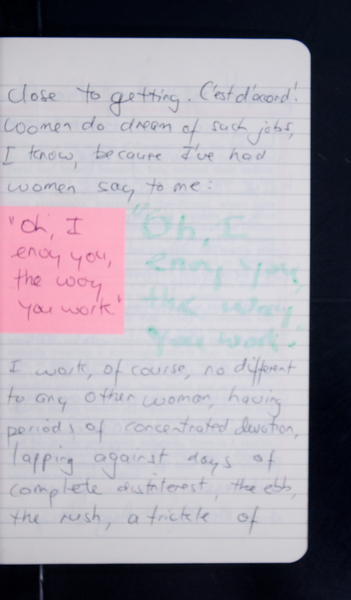 close to getting. C'est d'accord!
Women do dream of such jobs,
I know, because I've had
women say to me:
"Oh, I
envy you,
the way
you work"
"Oh, I
envy you,
the way
you work".
I work, of course, no different
to any other woman, having
periods of concentrated devotion,
lapping against days of
complete disinterest, the ebb,
the rush, a trickle of